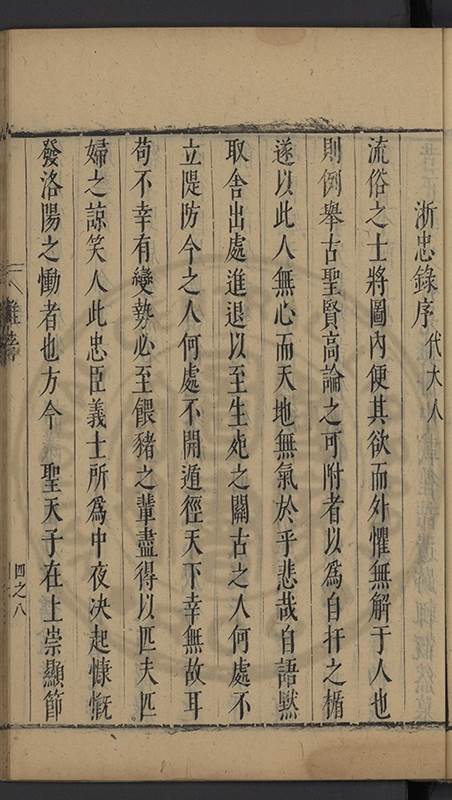 浙忠錄序代大人
流俗之士將圖內便其欲而外懼無解于人也
則倒舉古聖賢高論之可附者以為自扞之楯
遂以此人無心而天地無氣於乎悲哉自語默
取舍出處進退以至生死之關古之人何處不
立隄防今之人何處不開遁徑天下幸無故耳
苟不幸有變勢必至餵豬之輩盡得以匹夫匹
婦之諒笑人此忠臣義士所為中夜決起慷慨
發洛陽之慟者也方今 聖天子在上崇顯節
四之八